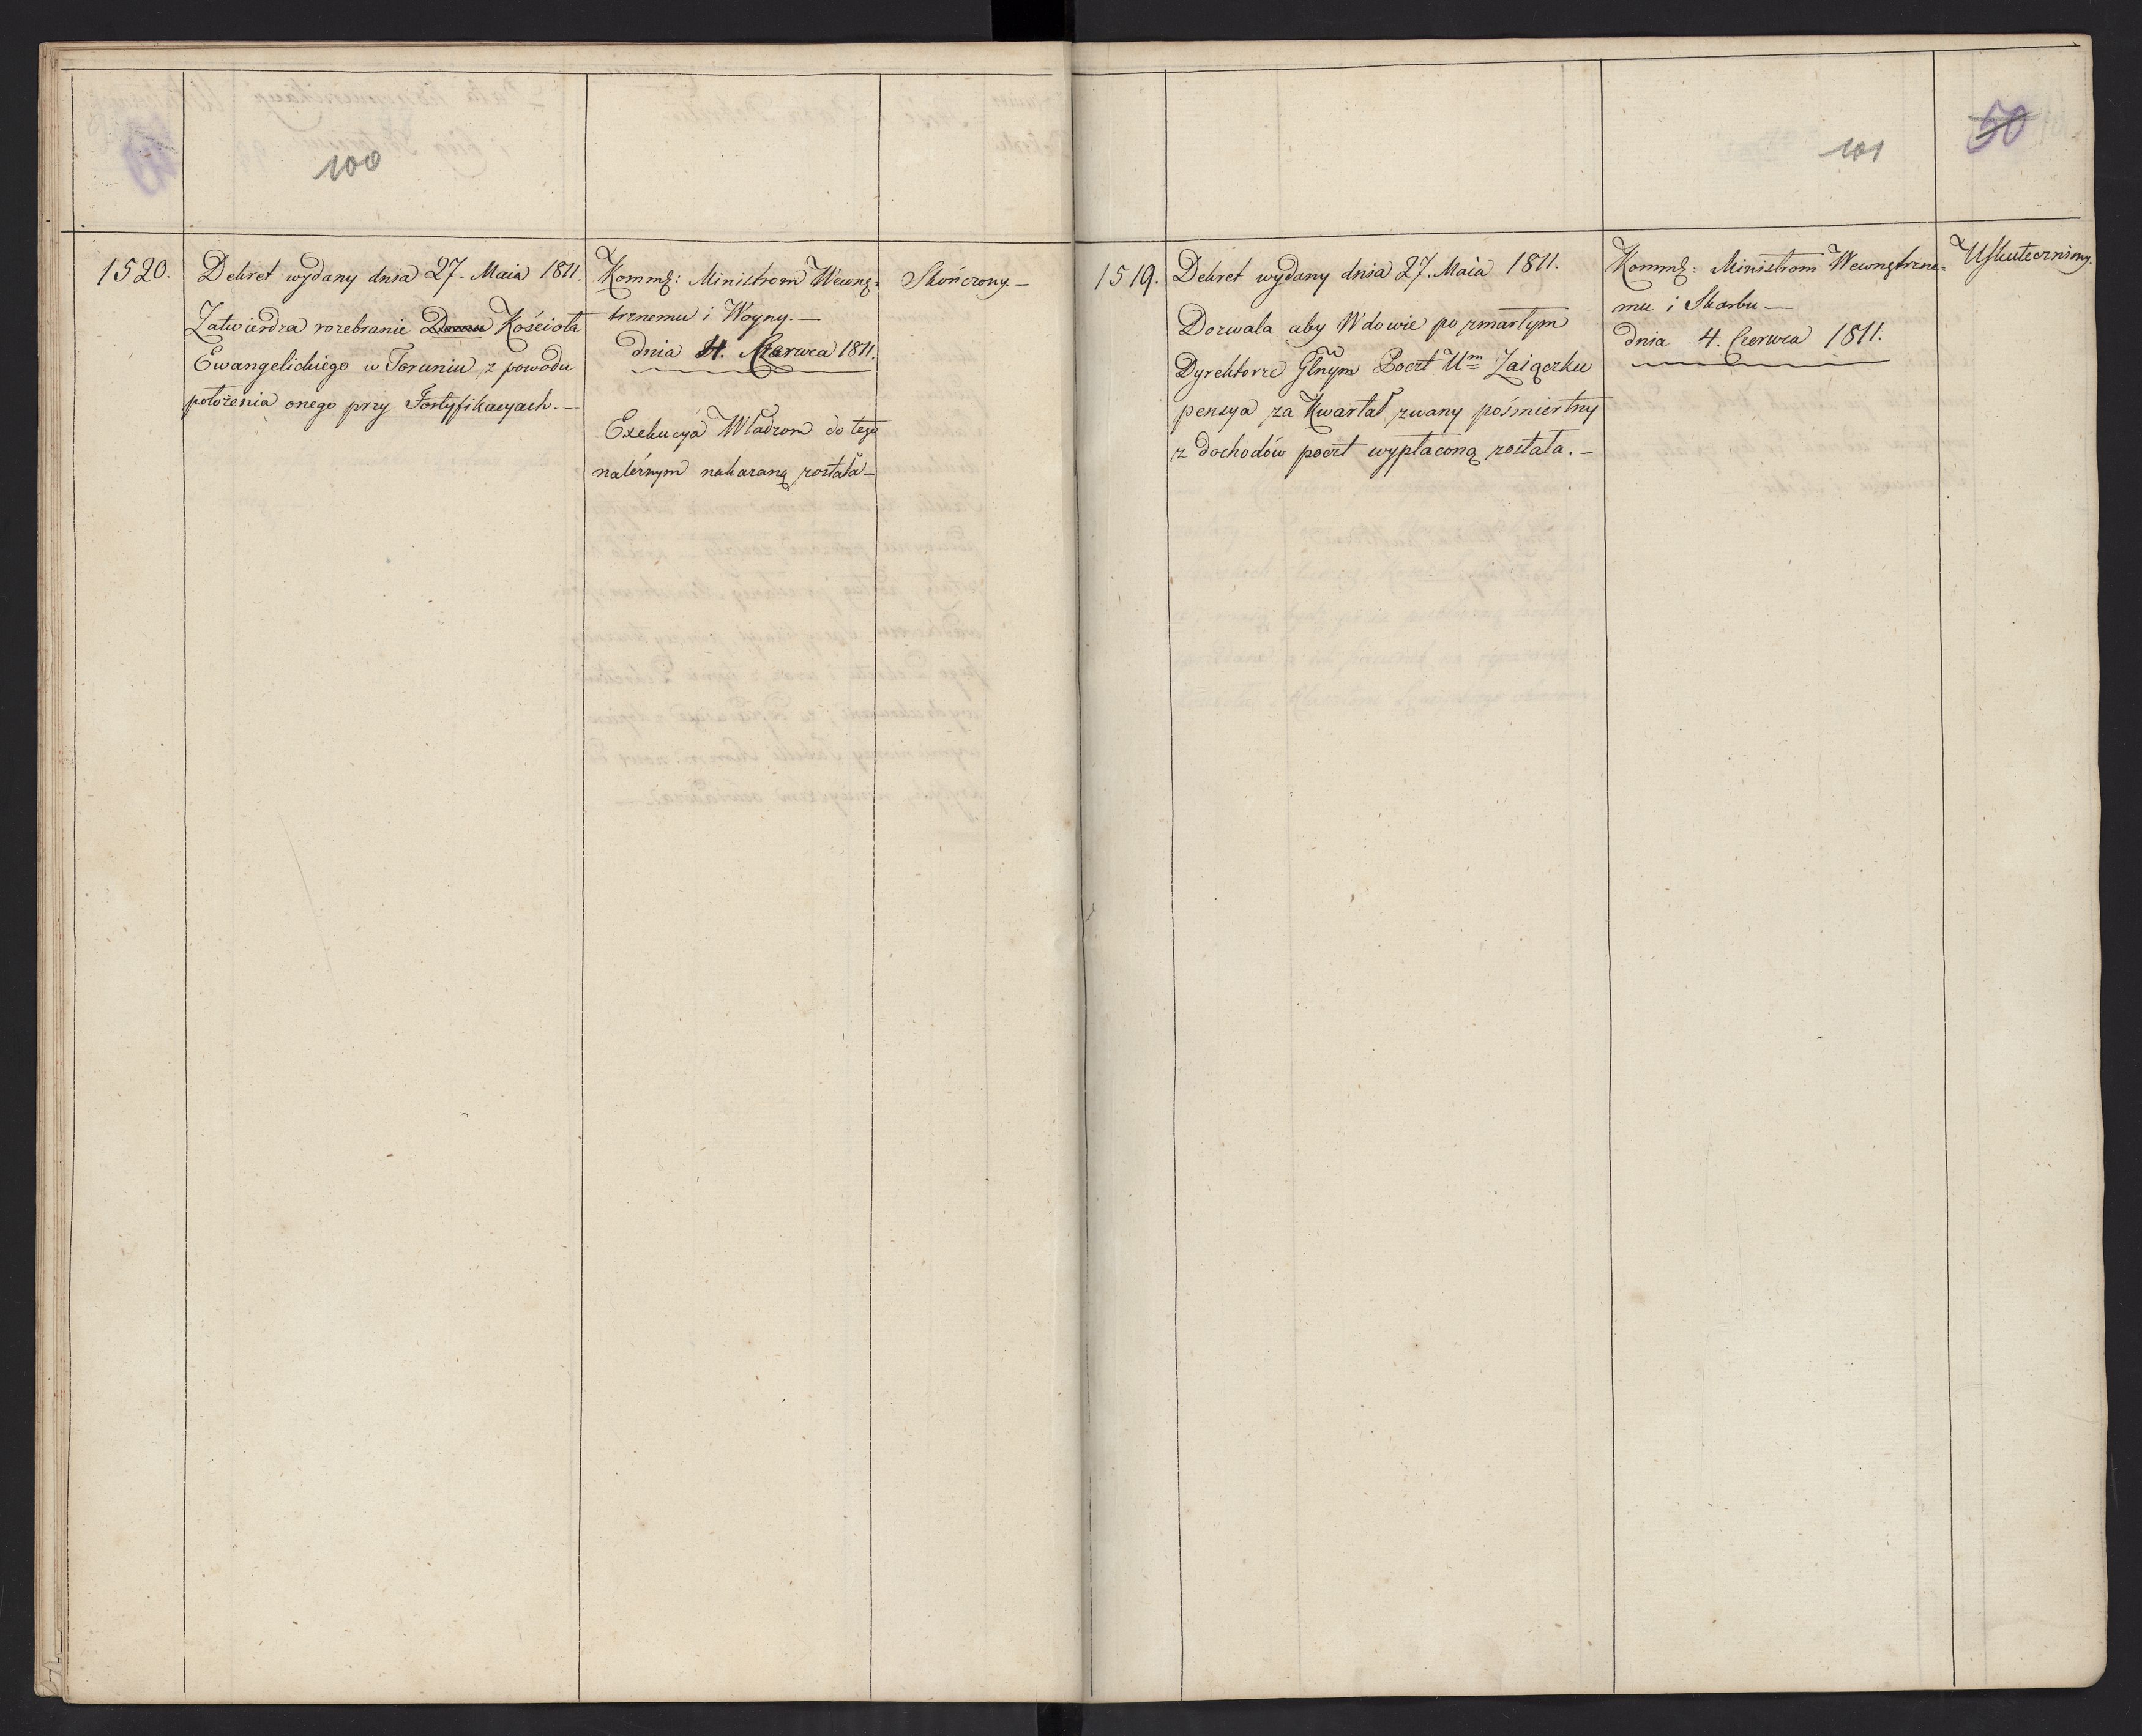 100
1520.
Dekret wydany dnia 27. Maia 1811.
Zatwierdza rozebranie Domu Kościoła
Ewangelickiego w Toruniu, z powodu
położenia onego przy Fortyfikacyach. —
Kommẜ: Ministrom Wewnę=
trznemu i Woyny. —
dnia 4. Czerwca 1811.
Exekucya Władzom do tego
należnym nakazaną została —
Skończony. —
101
50
1519.
Dekret wydany dnia 27. Maia 1811.
Dozwala aby Wdowie po zmarłym
Dyrektorze Głnym Poczt Um Zaiączku
pensya za Kwartał zwany pośmiertny
z dochodów poczt wypłaconą została. —
Kommẜ: Ministrom Wewnętrzne=
mu i Skarbu —
dnia 4. Czerwca 1811.
Uskuteczniony.